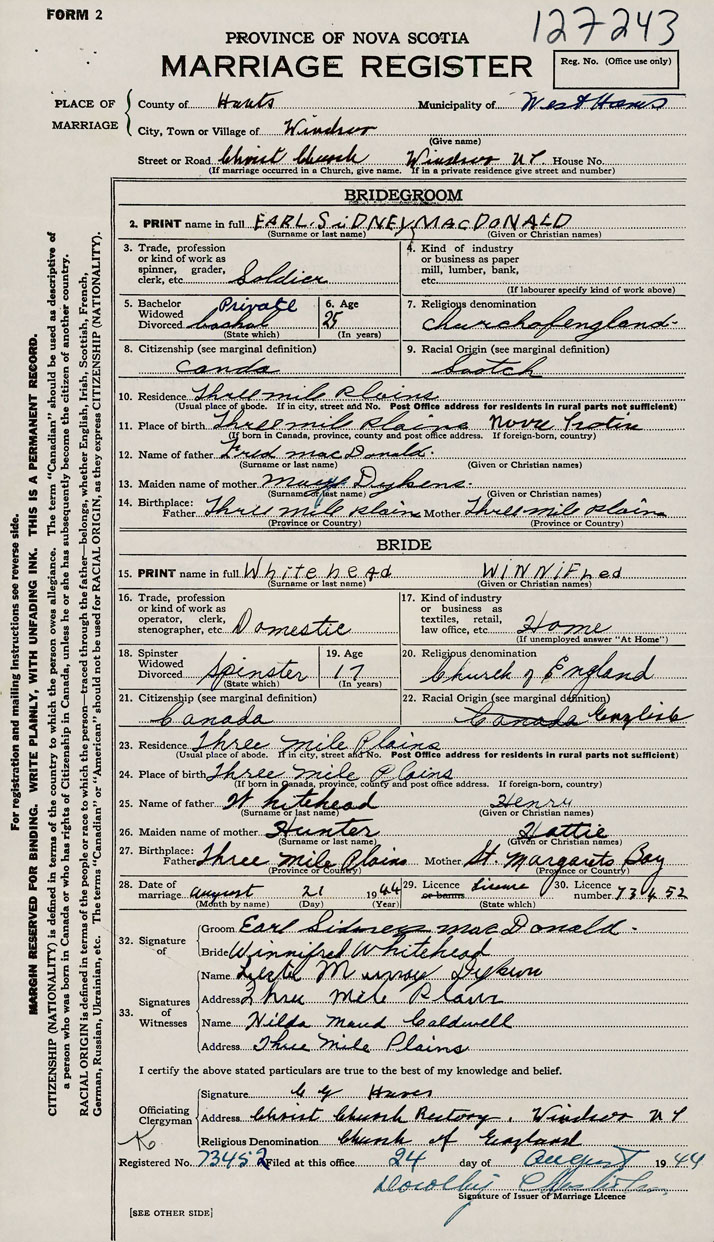 FORM 2
127243
PROVINCE OF NOVA SCOTIA
MARRIAGE REGISTER
Reg. No. (Office use only)
PLACE OF MARRIAGE
County of Hants Municipality of West Hants
City, Town or Village of Windsor
(Give name)
Street or Road Christ Church Windsor N S House No.
(If marriage occurred in a Church, give name. If in a private residence give street and number)
BRIDEGROOM
2. PRINT name in full EARL. SiDNEY MACDONALD
(Surname or last name) (Given or Christian names)
3. Trade, profession or kind of work as spinner, grader, clerk, etc. Soldier
4. Kind of industry or business as paper mill, lumber, bank, etc.
(If labourer specify kind of work above)
5. Bachelor Widowed Divorced Private
(State which)
6. Age 25
(In years)
7. Religious denomination churchofengland-
8. Citizenship (see marginal definition) Canda
9. Racial Origin (see marginal definition) Scotch
10. Residence Three mile plains
(Usual place of abode. If in city, street and No. Post Office address for residents in rural parts not sufficient)
11. Place of birth Three mile plains Nova Scotia
(If born in Canada, province, county and post office address. If foreign-born, country)
12. Name of father Fred macDonald.
(Surname or last name) (Given or Christian names)
13. Maiden name of mother Dykens.
(Surname or last name) (Given or Christian names)
14. Birthplace: Father Three mile plain Mother Three mile plains
(Province or Country) (Province or Country)
BRIDE
15. PRINT name in full Whitehead WINNIFred
(Surname or last name) (Given or Christian names)
16. Trade, profession or kind of work as operator, clerk, stenographer, etc. Domestic
17. Kind of industry or business as textiles, retail, law office, etc. Home
(If unemployed answer "At Home")
18. Spinster Widowed Divorced Spinster
(State which)
19. Age 17
(In years)
20. Religious denomination Church of England
21. Citizenship (see marginal definition) Canada
22. Racial Origin (see marginal definition) Canada English
23. Residence Three Mile Plains
(Usual place of abode. If in city, street and No. Post Office address for residents in rural parts not sufficient)
24. Place of birth Three Mile Plains
(If born in Canada, province, county and post office address. If foreign-born, country)
25. Name of father Whitehead Henry
(Surname or last name) (Given or Christian names)
26. Maiden name of mother Hunter Hattie
(Surname or last name) (Given or Christian names)
27. Birthplace: Father Three Mile Plains Mother St. Margarets Bay
(Province or Country) (Province or Country)
28. Date of marriage August 21 1944
(Month by name) (Day) (Year)
29. Licence or banns License
(State which)
30. Licence number 73452
32. Signature of
Groom Earl Sidney macDonald.
Bride Winnifred Whitehead
33. Signatures of Witnesses
Name Murray
Address Three Mile Plains
Name Hilda Maud Caldwell
Address Three Mile Plains
I certify the above stated particulars are true to the best of my knowledge and belief.
Officiating Clergyman
Signature
Address Christ Church Rectory, Windsor N S
Religious Denomination Church of England
Registered No. 73452 Filed at this office 24 day of August 1944
Signature of Issuer of Marriage Licence
[SEE OTHER SIDE]
For registration and mailing instructions see reverse side.
MARGIN RESERVED FOR BINDING. WRITE PLAINLY, WITH UNFADING INK. THIS IS A PERMANENT RECORD.
CITIZENSHIP (NATIONALITY) is defined in terms of the country to which the person owes allegiance. The term "Canadian" should be used as descriptive of
a person who was born in Canada or who has rights of Citizenship in Canada, unless he or she has subsequently become the citizen of another country.
RACIAL ORIGIN is defined in terms of the people or race to which the person—traced through the father—belongs, whether English, Irish, Scottish, French,
German, Russian, Ukrainian, etc. The terms "Canadian" or "American" should not be used for RACIAL ORIGIN, as they express CITIZENSHIP (NATIONALITY).